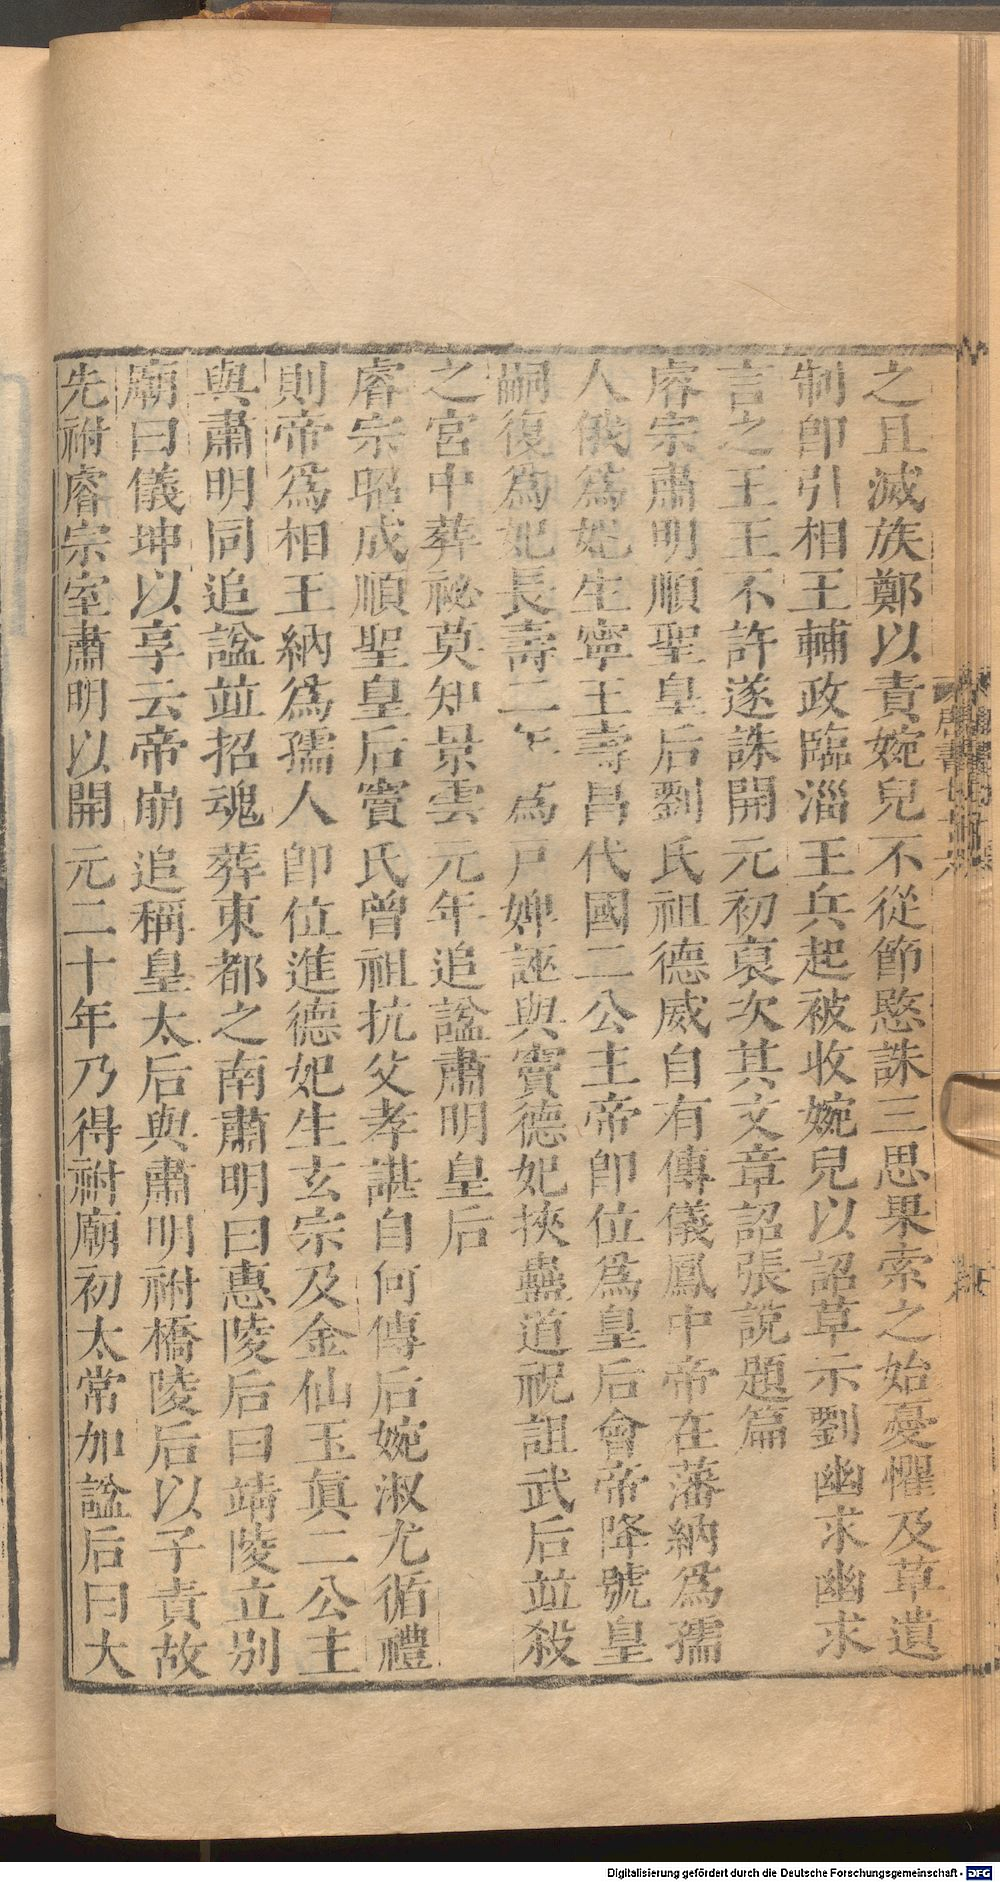 之且滅族鄭以責婉兒不從節愍誅三思果索之始憂懼及草遺
制卽引相王輔政臨淄王兵起被收婉兒以詔草示劉幽求幽求
言之王王不許遂誅開元初裒次其文章詔張說題篇
睿宗肅明順聖皇后劉氏祖德威自有傳儀鳳中帝在藩納爲孺
人俄爲妃生寧王壽昌代國二公主帝卽位爲皇后會帝降號皇
嗣復爲妃長壽二年爲戸婢誣與竇德妃挾蠱道祝詛武后並殺
之宮中葬祕莫知景雲元年追諡肅明皇后
睿宗昭成順聖皇后竇氏曾祖抗父孝諶自有傳后婉淑尤循禮
則帝爲相王納爲孺人卽位進德妃生玄宗及金仙玉眞二公主
與肅明同追諡並招魂葬東都之南肅明曰惠陵后曰靖陵立別
廟曰儀坤以享云帝崩追稱皇太后與肅明祔橋陵后以子貴故
先祔睿宗室肅明以開元二十年乃得祔廟初太常加諡后曰大
唐書七十六